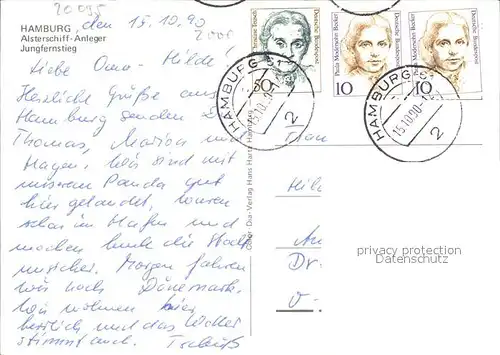 20095
HAMBURG
Alsterschiff-Anleger
Jungfernstieg
den 15.10.90
2000
Liebe Oma-Hilde!
Herzliche Grüße aus
Hamburg senden
Thomas, Marion und
Hagen. Wir sind mit
unserem Panda gut
hier gelandet, waren
schon im Hafen und
machen heute die Stadt
unsicher. Morgen fahren
wir noch Dänemark.
Wir wohnen hier
herrlich und das Wetter
stimmt auch. Tschüß
Color-Dia-Verlag Hans Hartz Hamburg
Deutsche Bundespost
50
Paula Modersohn-Becker
Deutsche Bundespost
10
Paula Modersohn-Becker
Deutsche Bundespost
10
HAMBURG
15.10.90
2
HAMBURG
15.10.90
2
Frau
Hil
An
Dr.
privacy protection
Datenschutz